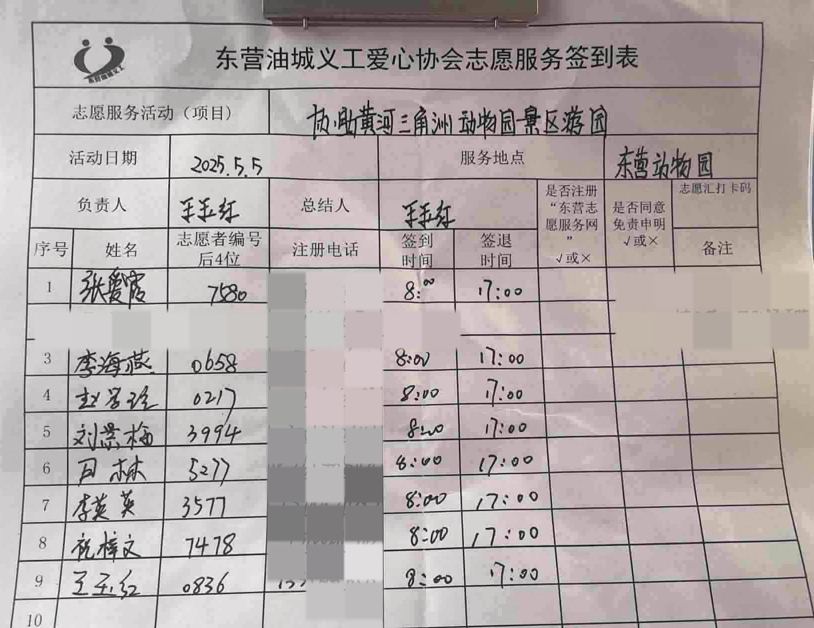 东营油城义工爱心协会志愿服务签到表
东营油城义工
志愿服务活动（项目） 协助黄河三角洲动物园景区游园
活动日期 2025.5.5 服务地点 东营动物园
负责人 王玉红 总结人 王玉红 是否注册“东营志愿服务网” √或× 是否同意免责申明 √或× 志愿汇打卡码
序号 姓名 志愿者编号后4位 注册电话 签到时间 签退时间 备注
1 张爱霞 7580 8:00 17:00
3 李海燕 0658 8:00 17:00
4 赵 0217 8:00 17:00
5 刘景梅 3994 8:00 17:00
6 林 5277 8:00 17:00
7 李英英 3577 8:00 17:00
8 祝梓文 7478 8:00 17:00
9 王玉红 0836 8:00 17:00
10